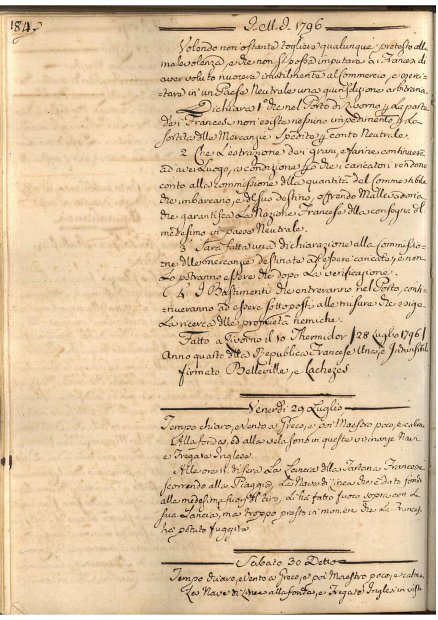 184
J. M. J. 1796
Volendo non ostante togliere qualunque pretesto alla
malevolenza, e che non si possa imputare ai Francesi di
aver voluto nuocere inutilmente al Commercio, e eserci-
tare in un Paese Neutrale una giurisdizione arbitraria
Dichiara 1° che nel Porto di Livorno p. la parte
dei Francesi non esiste nessuno impedimento p. la
sortita della Mercanzie Spedite p. conto Neutrale.
2 Che L'estrazione dei grani, e farine continuerà
ad aver Luogo, a condizione che i caricatori rendono
conto alla commissione della quantità del Commestibile
che imbarcano, e del suo destino, offrendo Mallevadoria
che garantisca La Nazione Francese della consegna del
medesimo in paese Neutrale.
3 Sarà fatta una dichiarazione alla commissio-
ne delle mercanzie destinate ad essere caricate, e non
Lo potranno essere che dopo La verificazione.
4 I Bastimenti che entreranno nel Porto, conti-
nueranno ad essere sottoposti alle misure che esige
La ricerca delle proprietà nemiche.
Fatto a Livorno il 10 Thermidor / 28 Luglio 1796 /
Anno quarto della Repubblica Francese Una, e Indivisibile
firmato Belleville, e Lachezes
Venerdì 29 Luglio
Tempo chiaro, e vento a Greco, e poi Maestro poco, e calma
Alla fonda, ed alla vela sono in queste vicinanze Navi
e Fregate Inglesi.
Alle ore 11 di sera La Lancia della Tartana Francese
scorrendo alla Piaggia, La Nave di Linea che è dato fondo
alle medesime fuori il tiro, li ha fatto fuoco sopra con la
sua Lancia, ma troppo presto in maniera che La Francese
ha potuto fuggire.
Sabato 30 Detto
Tempo chiaro, e vento a Greco, e poi Maestro poco, e calma
Le Nave di Linea alla fonda, e Fregate Inglesi in vista